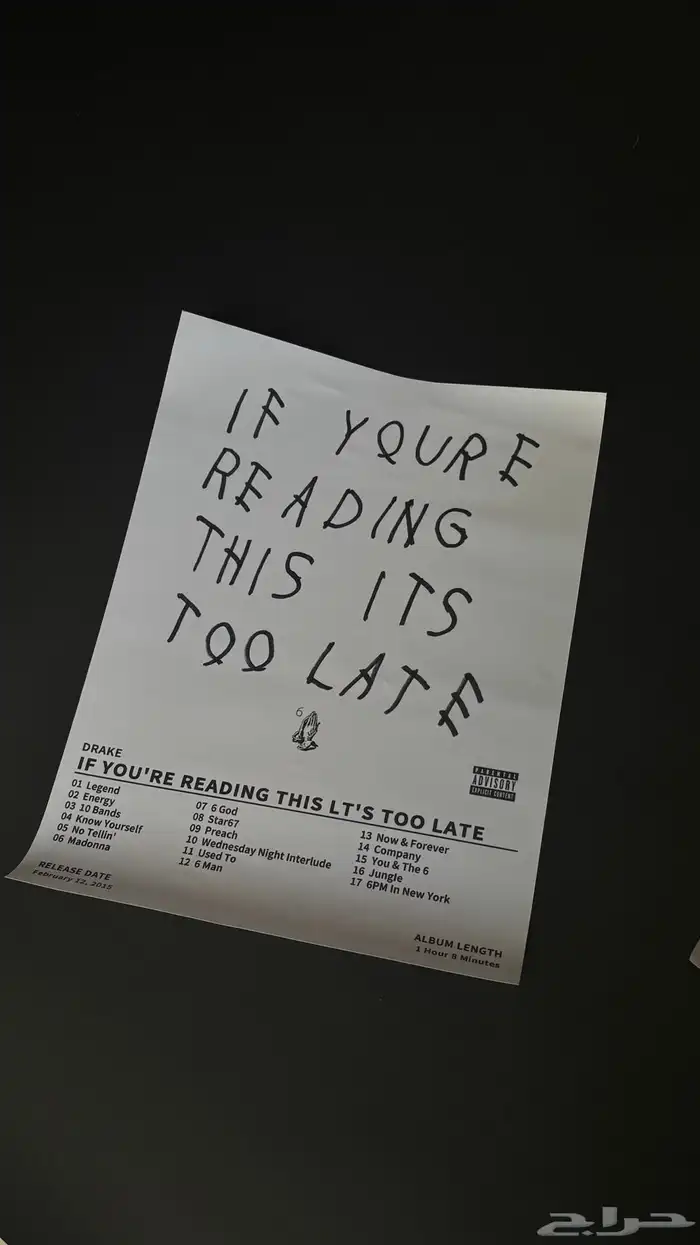 IF YOURE
READING
THIS ITS
TOO LATE
6
DRAKE
IF YOU'RE READING THIS LT'S TOO LATE
PARENTAL
ADVISORY
EXPLICIT CONTENT
01 Legend
02 Energy
03 10 Bands
04 Know Yourself
05 No Tellin'
06 Madonna
07 6 God
08 Star67
09 Preach
10 Wednesday Night Interlude
11 Used To
12 6 Man
13 Now & Forever
14 Company
15 You & The 6
16 Jungle
17 6PM In New York
RELEASE DATE
February 12, 2015
ALBUM LENGTH
1 Hour 8 Minutes
حراج